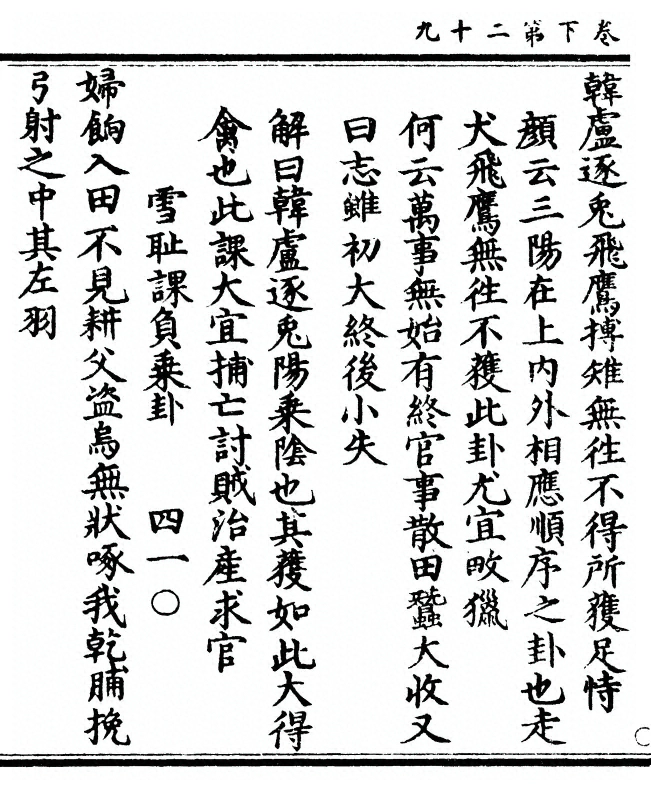 卷下第二十九
韓盧逐兎飛鷹搏雉無往不得所獲足恃
顏云三陽在上內外相應順序之卦也走
犬飛鷹無往不獲此卦尤宜畋獵
何云萬事無始有終官事散田蠶大收又
曰志雖初大終後小失
解曰韓盧逐兎陽乗陰也其獲如此大得
禽也此課大宜捕亡討賊治產求官
雪耻課負乗卦 四一〇
婦餉入田不見耕父盜烏無狀啄我乾脯挽
弓射之中其左羽